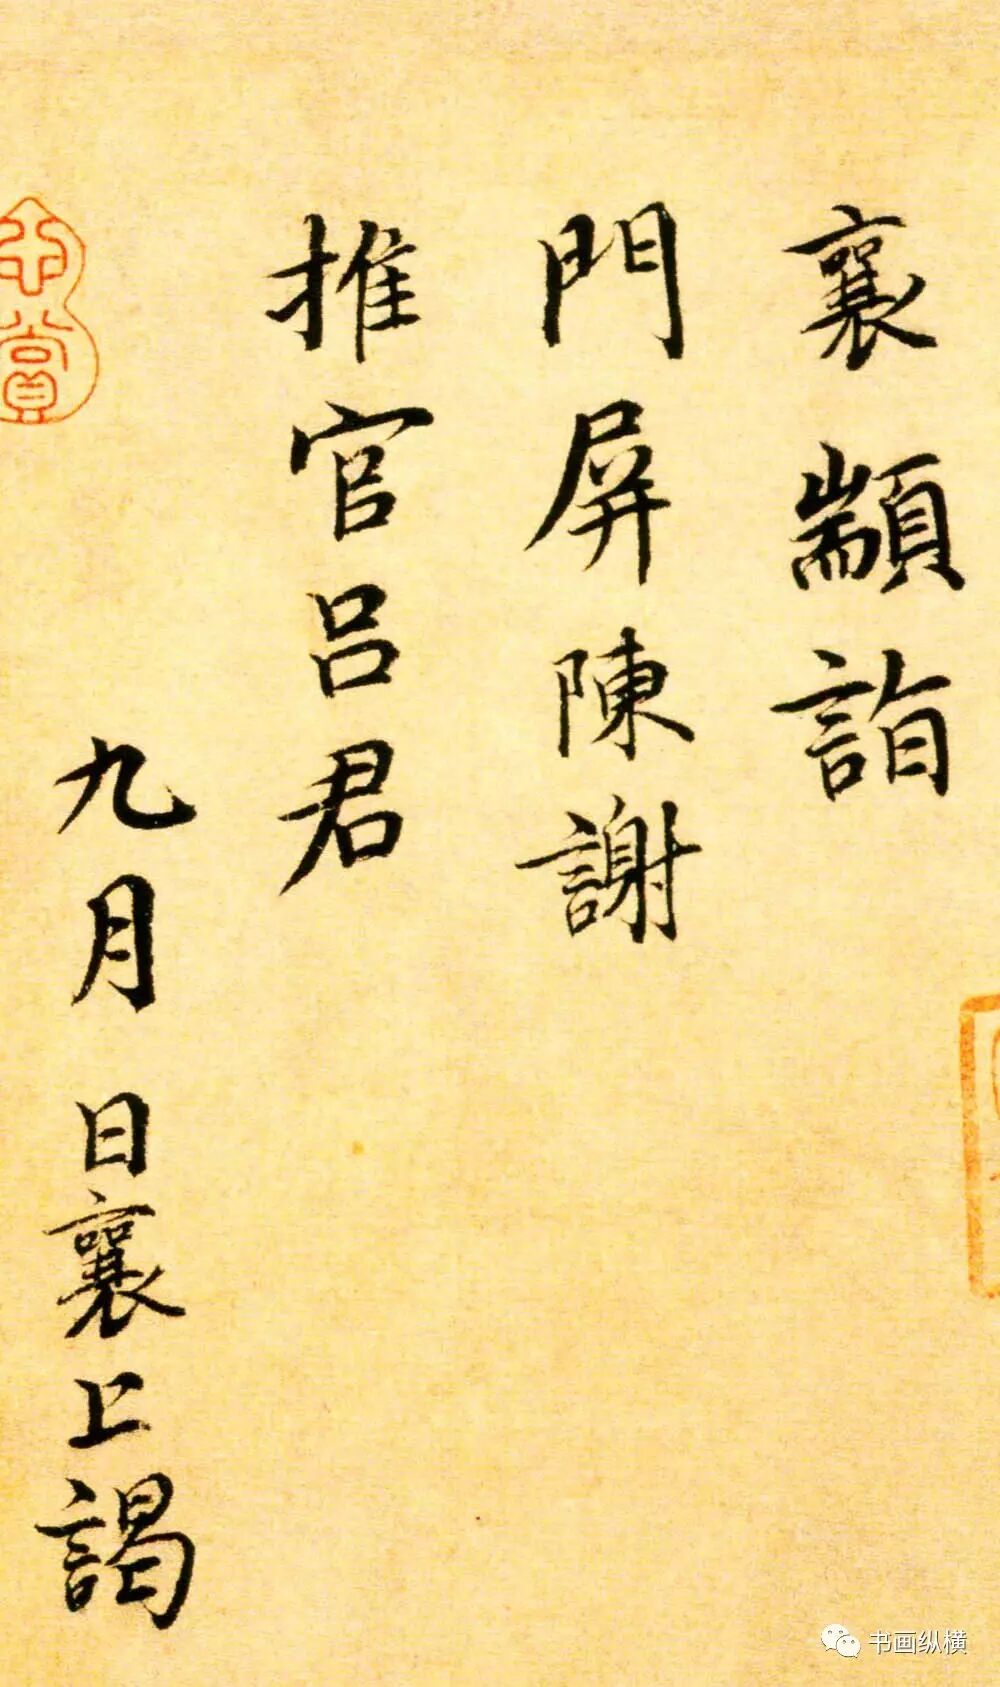 襄顓詣
門屏陳謝
推官呂君
九月 日襄上謁
书画纵横